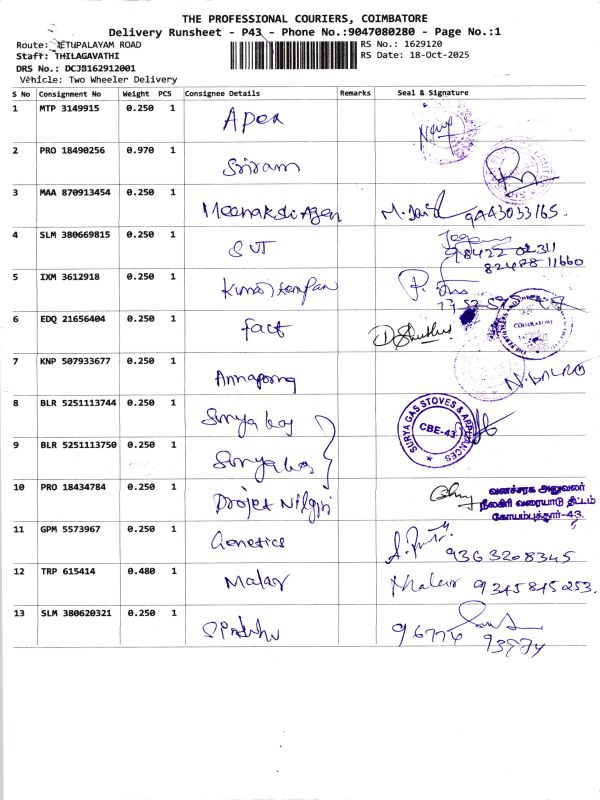 THE PROFESSIONAL COURIERS, COIMBATORE
Delivery Runsheet - P43 - Phone No.:9047080280 - Page No.:1
Route: ETUPALAYAM ROAD
RS No.: 1629120
Staff: THILAGAVATHI
RS Date: 18-Oct-2025
DRS No.: DCJB162912001
Vehicle: Two Wheeler Delivery
S No Consignment No Weight PCS Consignee Details Remarks Seal & Signature
1 MTP 3149915 0.250 1 Apex
2 PRO 18490256 0.970 1 Sriram
3 MAA 870913454 0.250 1 Meenakshi Agen 9443033165.
4 SLM 380669815 0.250 1 SVT
98422 02311
82488 11660
5 IXM 3612918 0.250 1
6 EDQ 21656404 0.250 1 fact
COIMBATORE
7 KNP 507933677 0.250 1 Annapoorng
8 BLR 5251113744 0.250 1 Surya Gas
SURYA GAS STOVES & APPLIANCES
CBE-43
9 BLR 5251113750 0.250 1 Surya Gas
10 PRO 18434784 0.250 1 Projet Nilgiri
வனச்சரக அலுவலர்
நீலகிரி வரையாடு திட்டம்
கோயம்புத்தூர்-43.
11 GPM 5573967 0.250 1 Genetics 9363208345
12 TRP 615414 0.480 1 Malar Malar 9345845253.
13 SLM 380620321 0.250 1 96776
93974